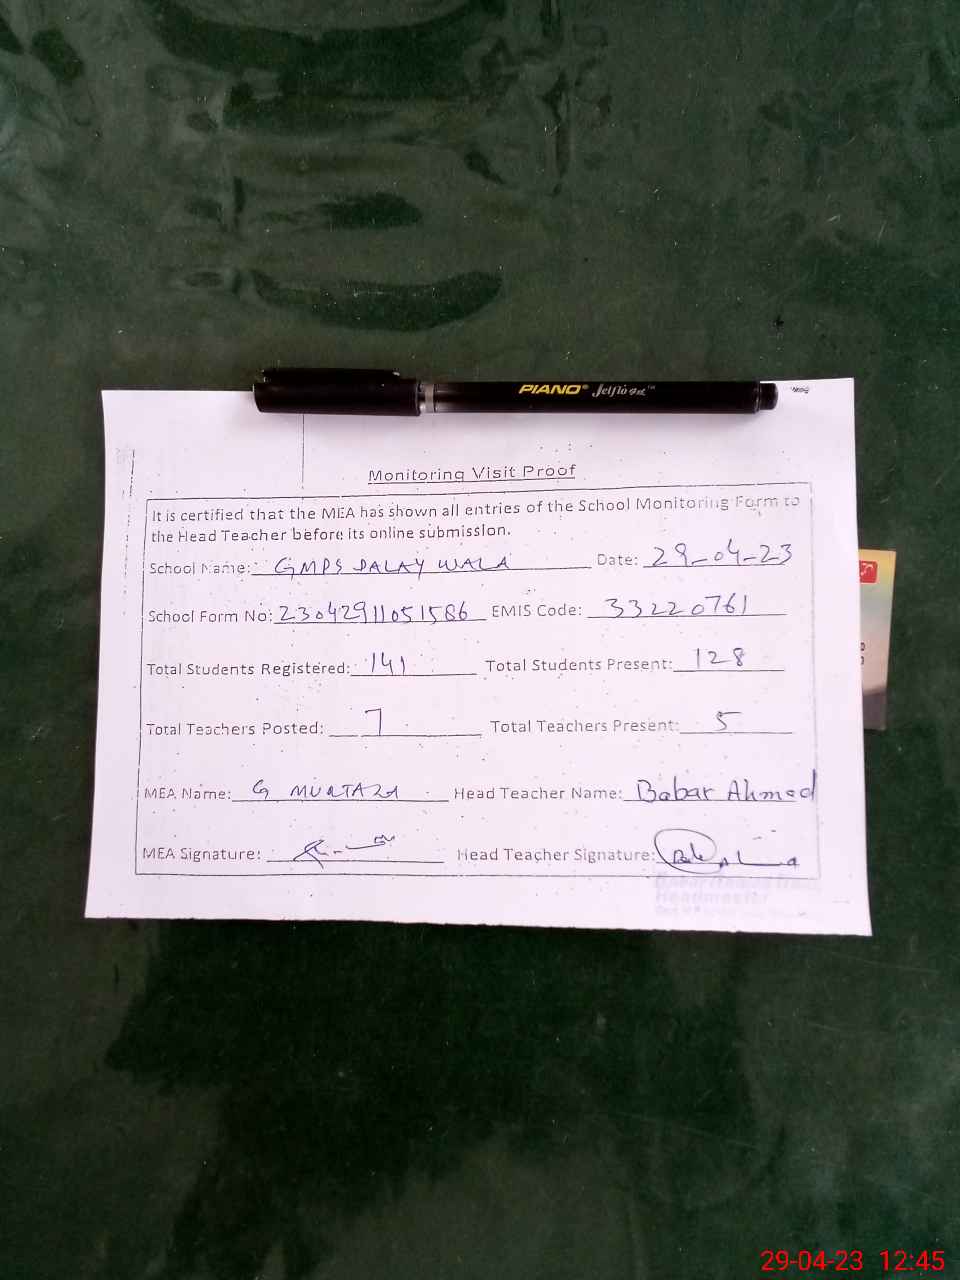 PIANO® Jelflo Gel™
Monitoring Visit Proof
It is certified that the MEA has shown all entries of the School Monitoring Form to
the Head Teacher before its online submission.
School Name: GMPS DALAY WALA Date: 29-04-23
School Form No: 23042911051586 EMIS Code: 33220761
Total Students Registered: 141 Total Students Present: 128
Total Teachers Posted: 7 Total Teachers Present: 5
MEA Name: G MURTAZA Head Teacher Name: Babar Ahmed
MEA Signature: Head Teacher Signature:
Headmaster
29-04-23 12:45